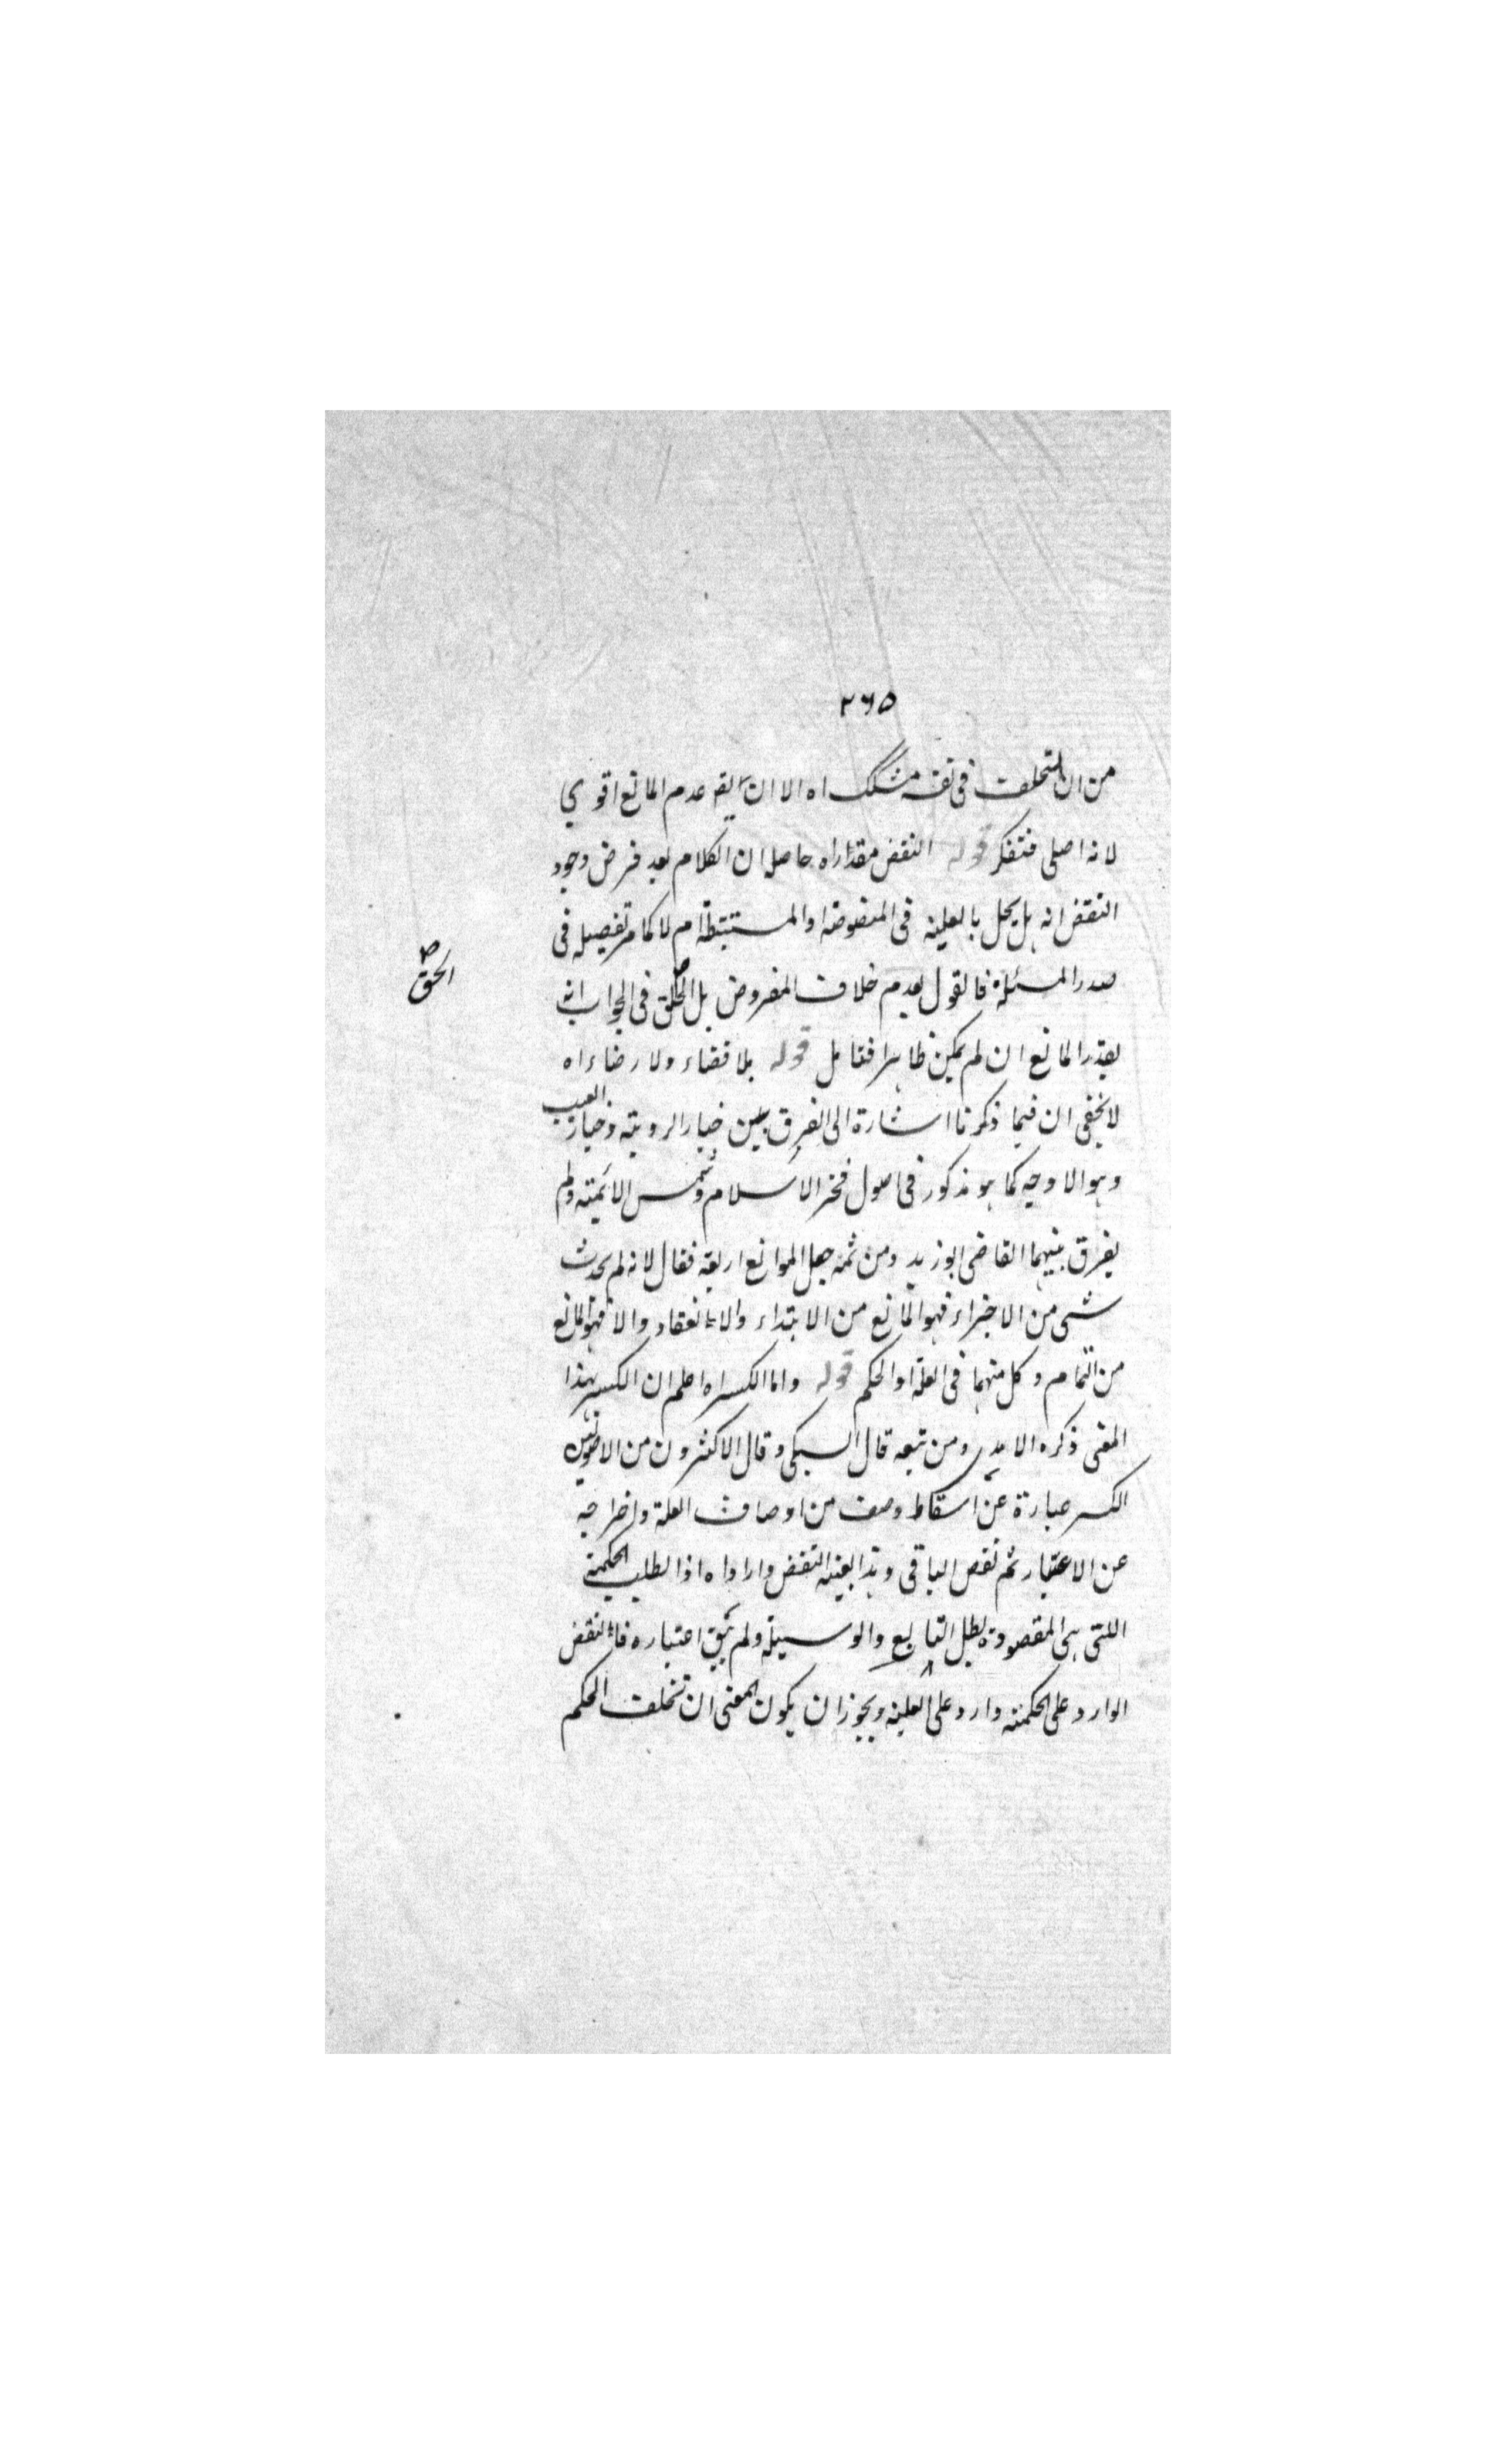 ٢٦٥
من ان التخلف فى نفسه مشكك اه الا ان آية عدم المانع اقوى
لانه اصلى فتفكر قوله النقض مقدار اه حاصله ان الكلام بعد فرض وجود
النقض انه هل يخل بالعلية فى المنصوصة او المستنبطة ام لا كما مر تفصيله فى
صدر المسئلة فالقول بعدم خلاف المفروض بل الحق فى الجواب انه
الحق
يقدر المانع ان لم يكن ظاهرا فتامل قوله بلا قضاء ولا رضاء اه
لا يخفى ان فيما ذكرنا اشارة الى الفرق بين خيار الروية وخيار العيب
وهو الاوجه كما هو مذكور فى اصول فخر الاسلام وشمس الائمة ولم
يفرق بينهما القاضى ابو زيد ومن ثمه جعل الموانع اربعة فقال لانه لم يحدث
شى من الاجزاء فهو المانع من الابتداء والانعقاد والا فهو المانع
من التمام وكل منهما فى العلة او الحكم قوله واما الكسر اه اعلم ان الكسر بهذا
المعنى ذكره الامدى ومن تبعه قال السبكى وقال الاكثرون من الاصوليين
الكسر عبارة عن اسقاط وصف من اوصاف العلة واخراجه
عن الاعتبار ثم نقض الباقى وهذا بعينه النقض وارادا ه اذا بطلت الحكمة
اللتى هى المقصودة بطل التابع والوسيلة ولم يبق اعتباره فالنقض
الوارد على الحكمة وارد على العلية ويجوز ان يكون المعنى ان تخلف الحكم